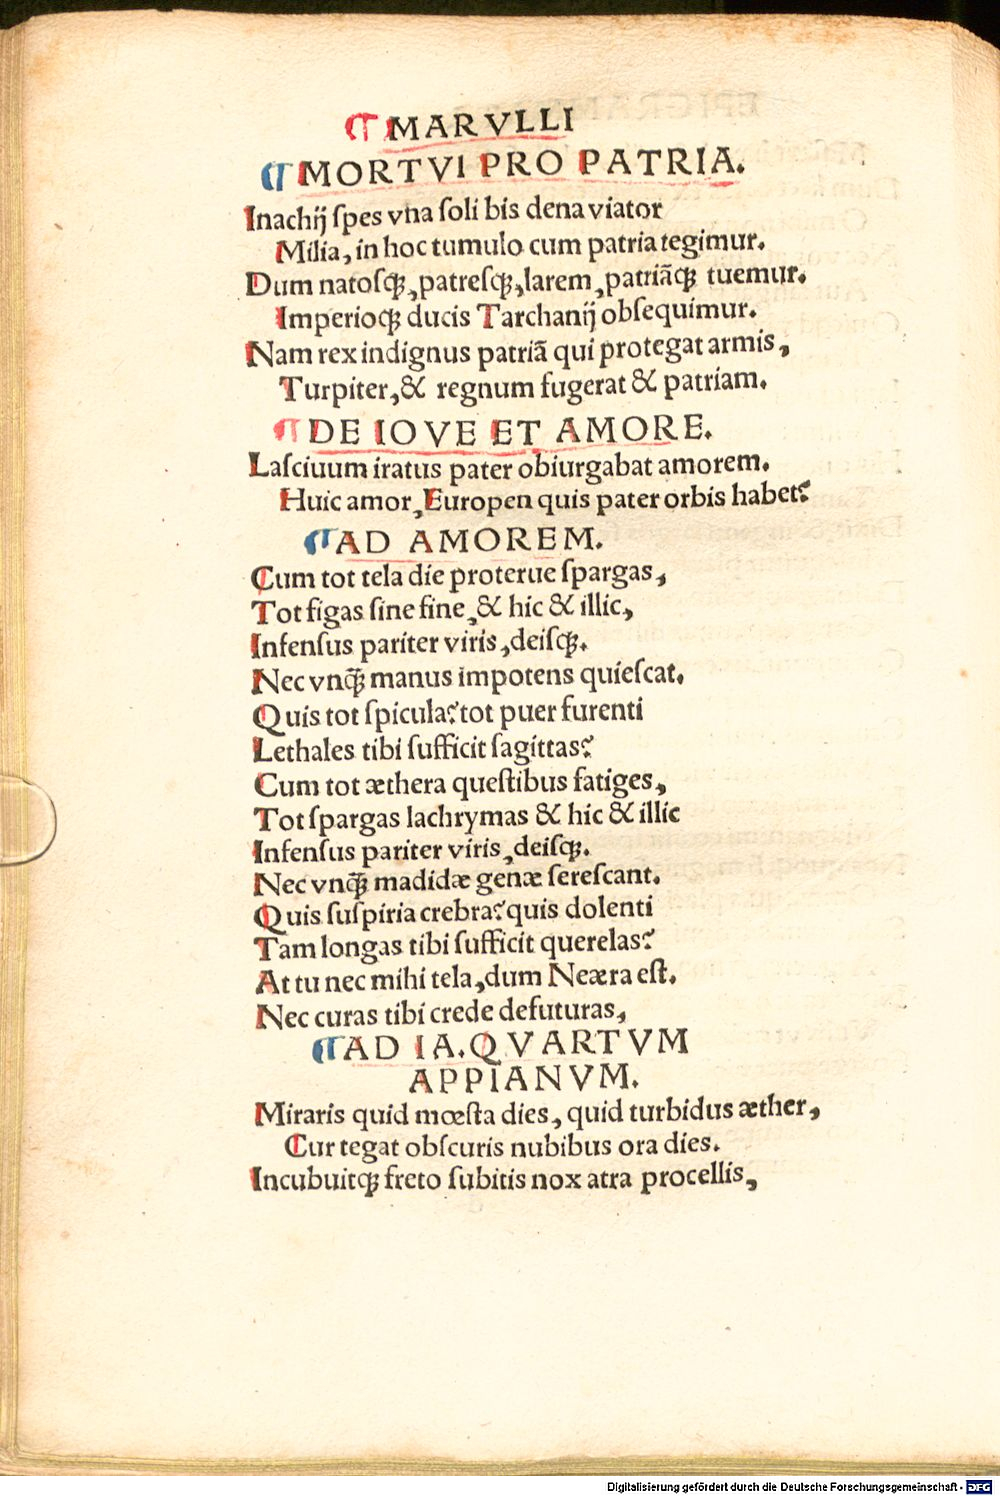 ¶ MARVLLI
¶ MORTVI PRO PATRIA.
Inachĳ ſpes vna ſoli bis dena viator
Milia, in hoc tumulo cum patria tegimur.
Dum natoſqꝫ, patreſqꝫ, larem, patriãqꝫ tuemur.
Imperioqꝫ ducis Tarchanĳ obſequimur.
Nam rex indignus patriã qui protegat armis,
Turpiter, & regnum fugerat & patriam.
¶ DE IOVE ET AMORE.
Laſciuum iratus pater obiurgabat amorem.
Huic amor, Europen quis pater orbis habet?
¶ AD AMOREM.
Cum tot tela die proterue ſpargas,
Tot figas ſine fine, & hic & illic,
Infenſus pariter viris, deiſqꝫ.
Nec vnq̃ꝫ manus impotens quieſcat.
Quis tot ſpicula? tot puer furenti
Lethales tibi ſufficit ſagittas?
Cum tot æthera queſtibus fatiges,
Tot ſpargas lachrymas & hic & illic
Infenſus pariter viris, deiſqꝫ.
Nec vnq̃ꝫ madidæ genæ ſereſcant.
Quis ſuſpiria crebra? quis dolenti
Tam longas tibi ſufficit querelas?
At tu nec mihi tela, dum Neæra eſt.
Nec curas tibi crede defuturas,
¶ AD IA. QVARTVM
APPIANVM.
Miraris quid mœſta dies, quid turbidus æther,
Cur tegat obſcuris nubibus ora dies.
Incubuitqꝫ freto ſubitis nox atra procellis,
Digitalisierung gefördert durch die Deutsche Forschungsgemeinschaft - DFG